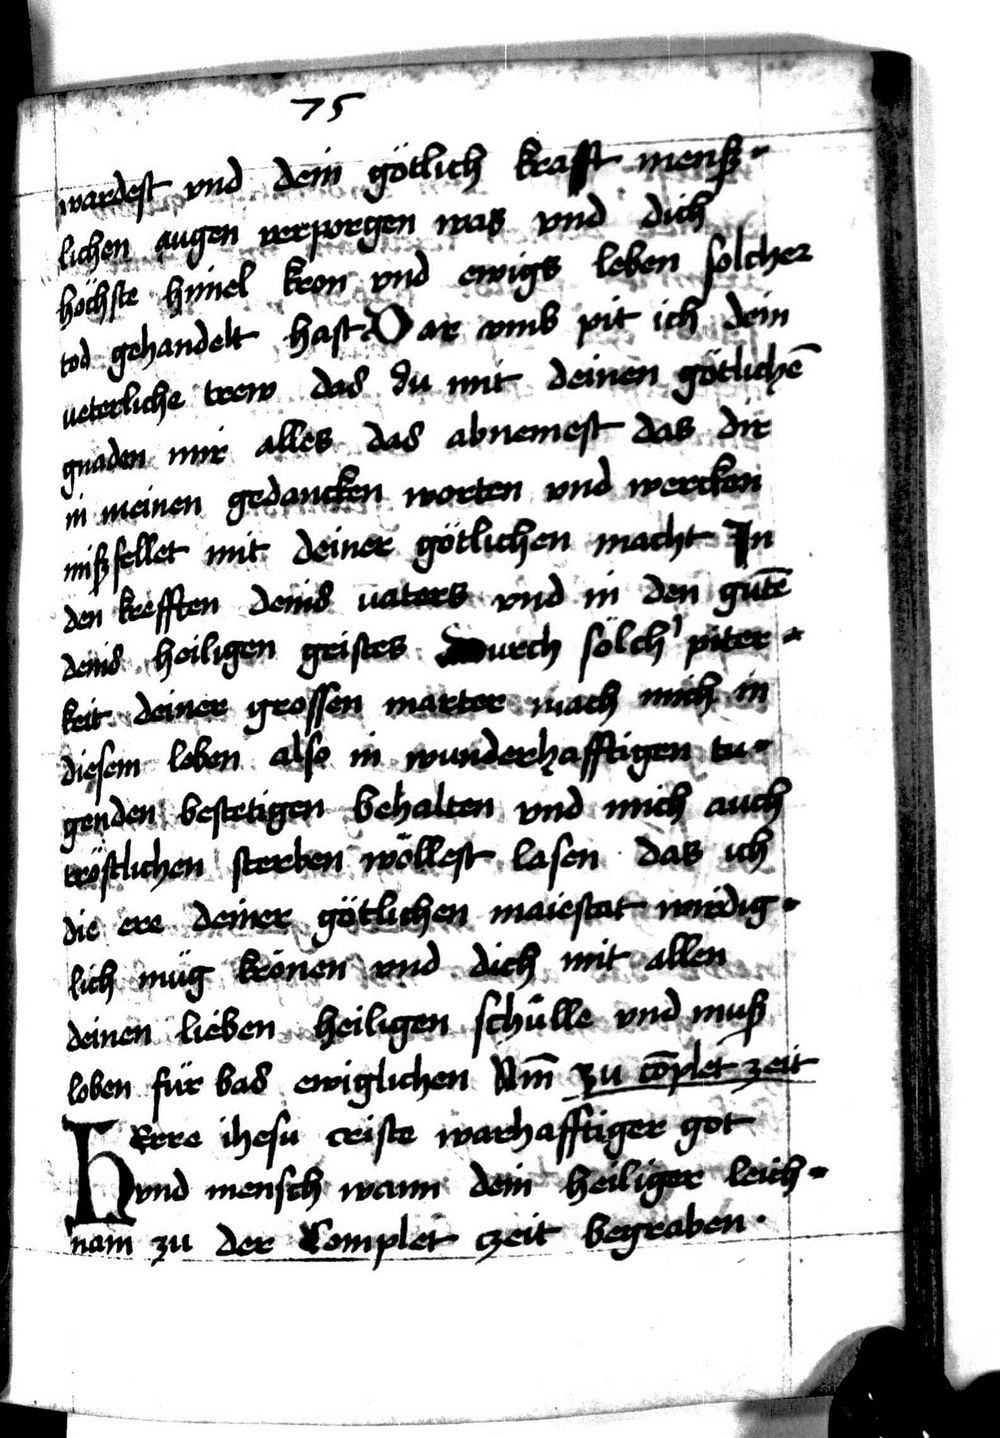 75
wardest vnd dein götlich krafft mensch-
lichen augen verporgen was vnd dich
höchste himel kron vnd ewigs leben solcher
tod gehandelt hast Dar vmb pit ich dein
veterliche trew das du mit deinen götlichē
gnaden mir alles das abnemest das dir
in meinen gedancken worten vnd wercken
mißfellet mit deiner götlichen macht In
den krefften deins vaters vnd in den gutē
deins heiligen geistes durch sölch piter-
keit deiner grossen marter mach mich in
diesem leben also in wunderhafftigen tu-
genden bestetigen behalten vnd mich auch
tröstlichen sterben wöllest lasen das ich
die ere deiner götlichen maiestat wirdig-
lich müg krönen vnd dich mit allen
deinen lieben heiligen schülle vnd muß
loben für bas ewiglichen Am̄ Zu cōplet zeit
HErre ihesu criste warhafftiger got
vnd mensch wann dein heiliger leich-
nam zu der Complet czeit begraben.